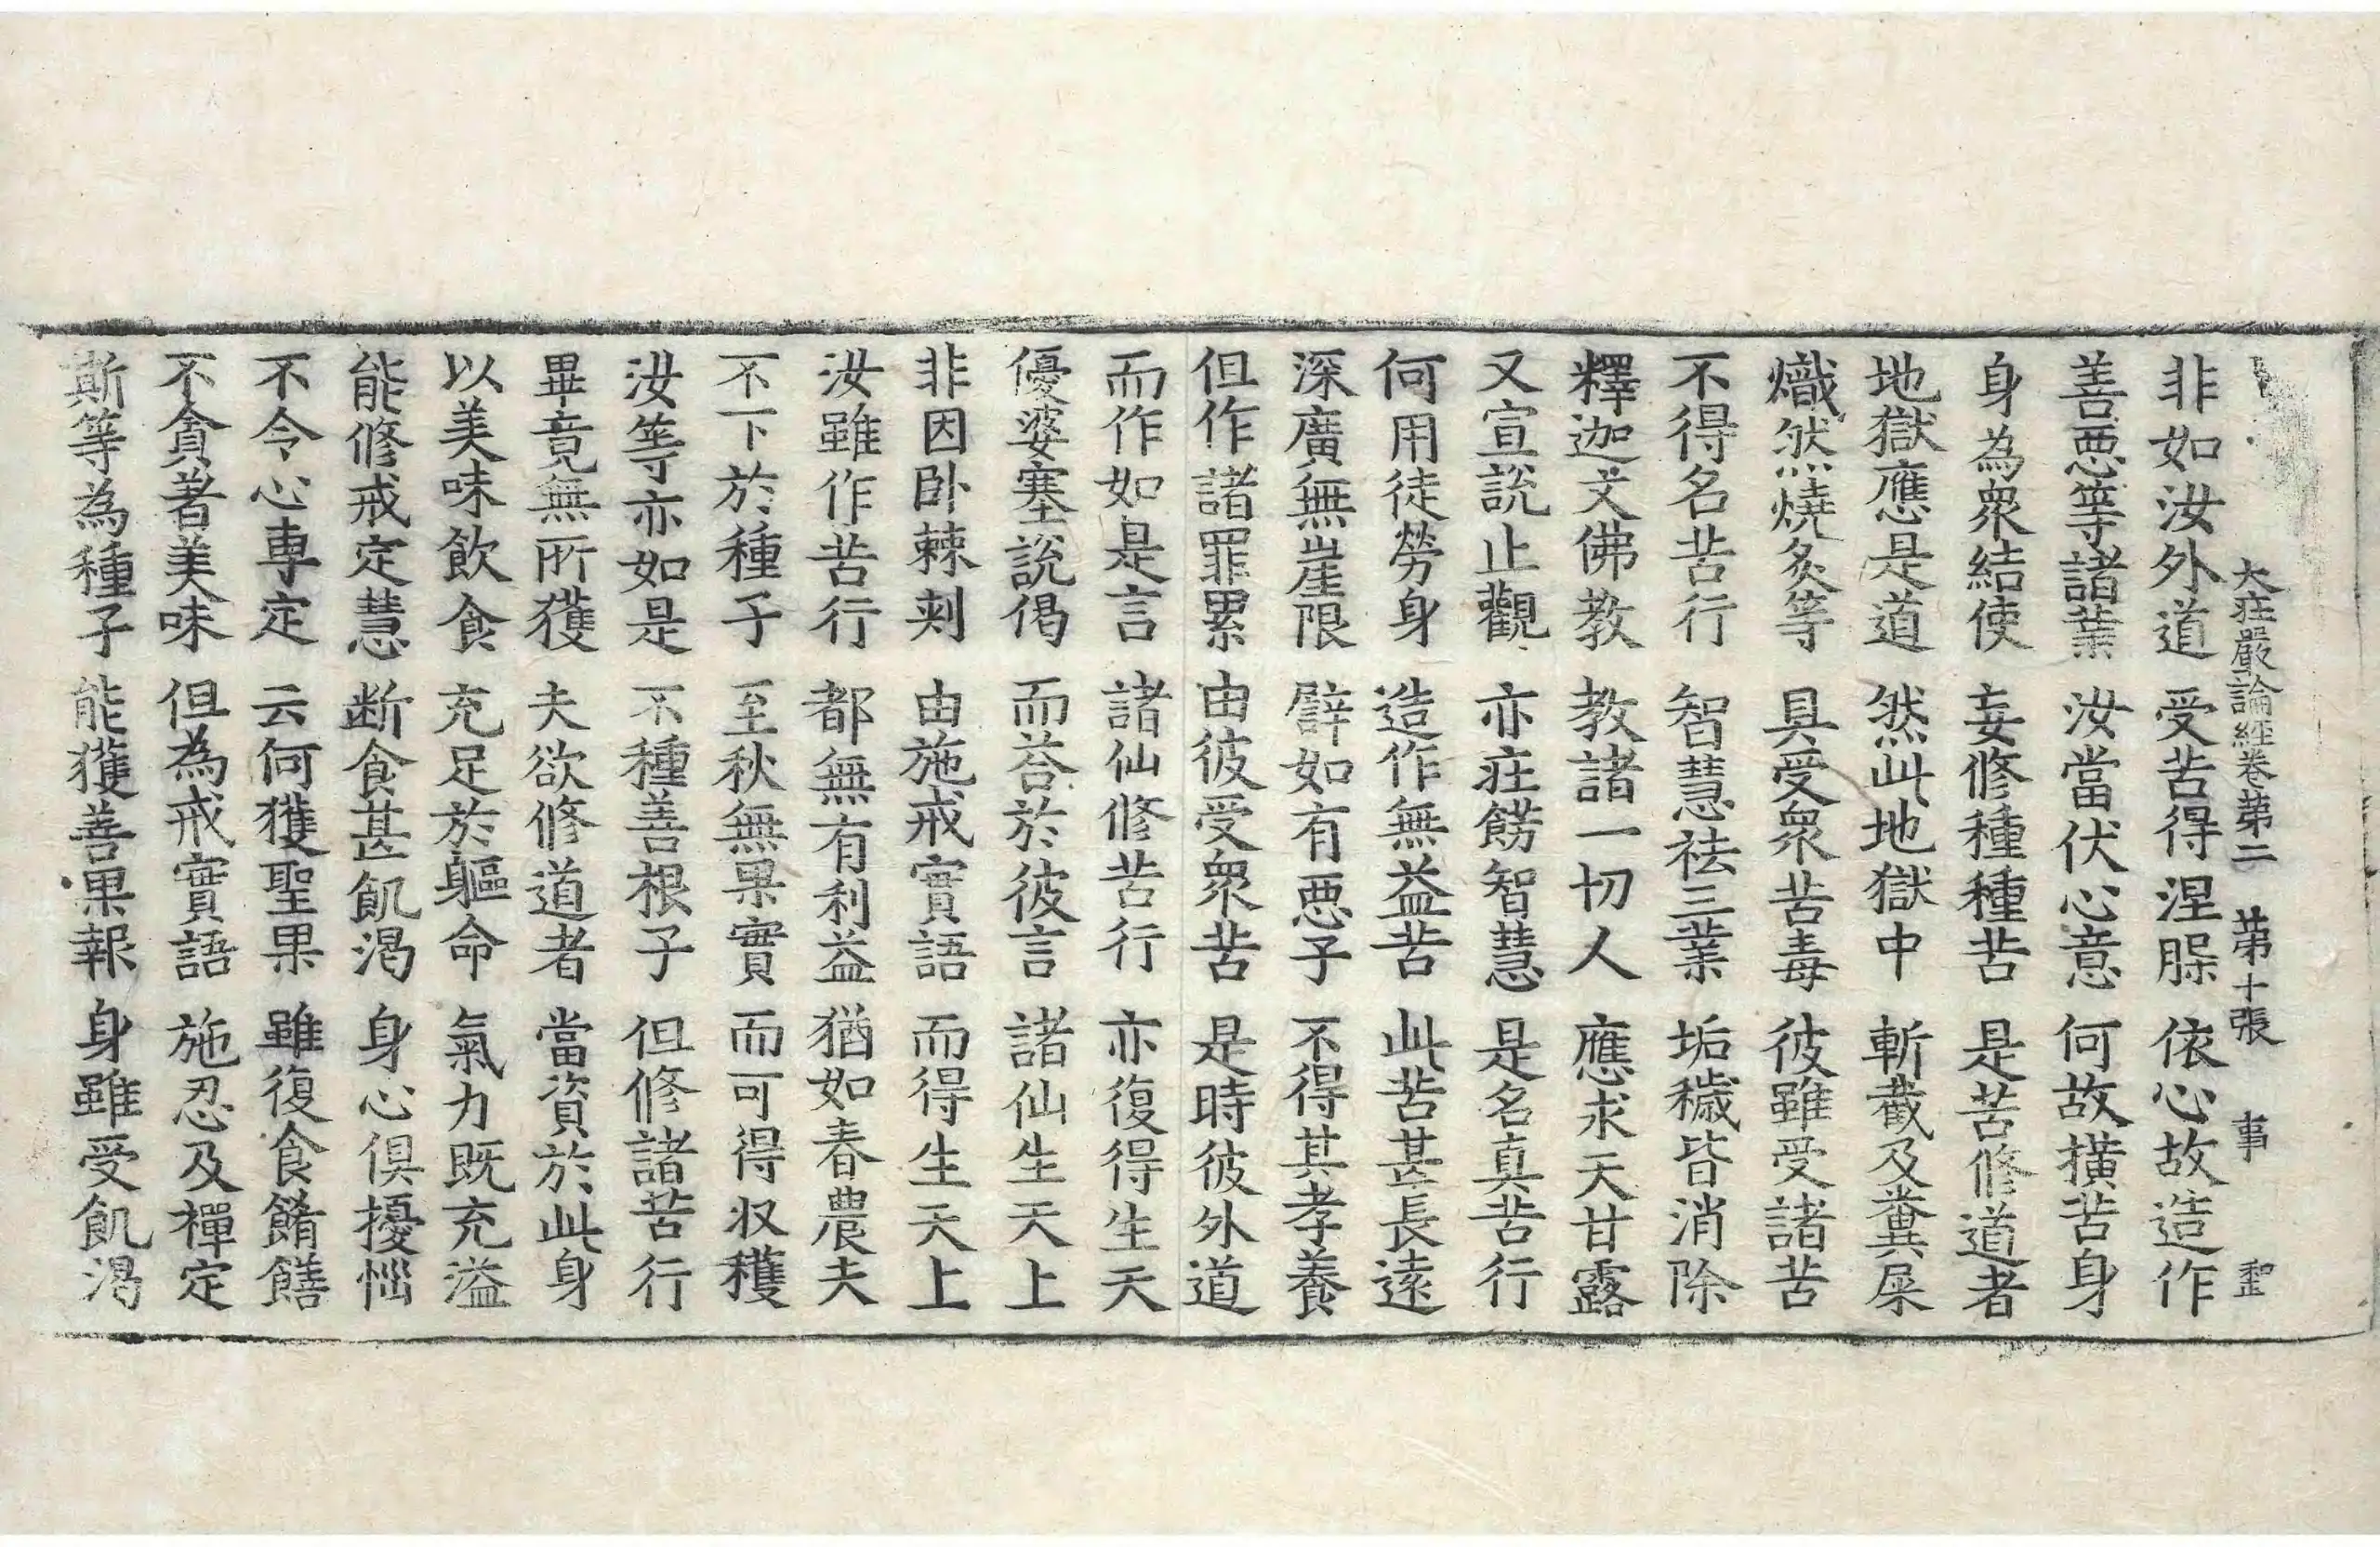 大莊嚴論經卷第二 第十張 事 聖
非如汝外道 受苦得涅槃 依心故造作
善惡等諸業 汝當伏心意 何故橫苦身
身為衆結使 妄修種種苦 是苦修道者
地獄應是道 然此地獄中 斬截及糞屎
熾然燒炙等 具受衆苦毒 彼雖受諸苦
不得名苦行 智慧袪三業 垢穢皆消除
釋迦文佛教 教諸一切人 應求天甘露
又宣說止觀 亦莊餝智慧 是名真苦行
何用徒勞身 造作無益苦 此苦甚長遠
深廣無崖限 譬如有惡子 不得其孝養
但作諸罪累 由彼受衆苦 是時彼外道
而作如是言 諸仙修苦行 亦復得生天
優婆塞說偈 而荅於彼言 諸仙生天上
非因卧棘刾 由施戒實語 而得生天上
汝雖作苦行 都無有利益 猶如春農夫
不下於種子 至秋無果實 而可得収穫
汝等亦如是 不種善根子 但修諸苦行
畢竟無所獲 夫欲修道者 當資於此身
以美味飲食 充足於軀命 氣力既充溢
能修戒定慧 断食甚飢渴 身心俱擾惱
不令心專定 云何獲聖果 雖復食餚饍
不貪著美味 但為戒實語 施忍及禪定
斯等為種子 能獲善果報 身雖受飢渴